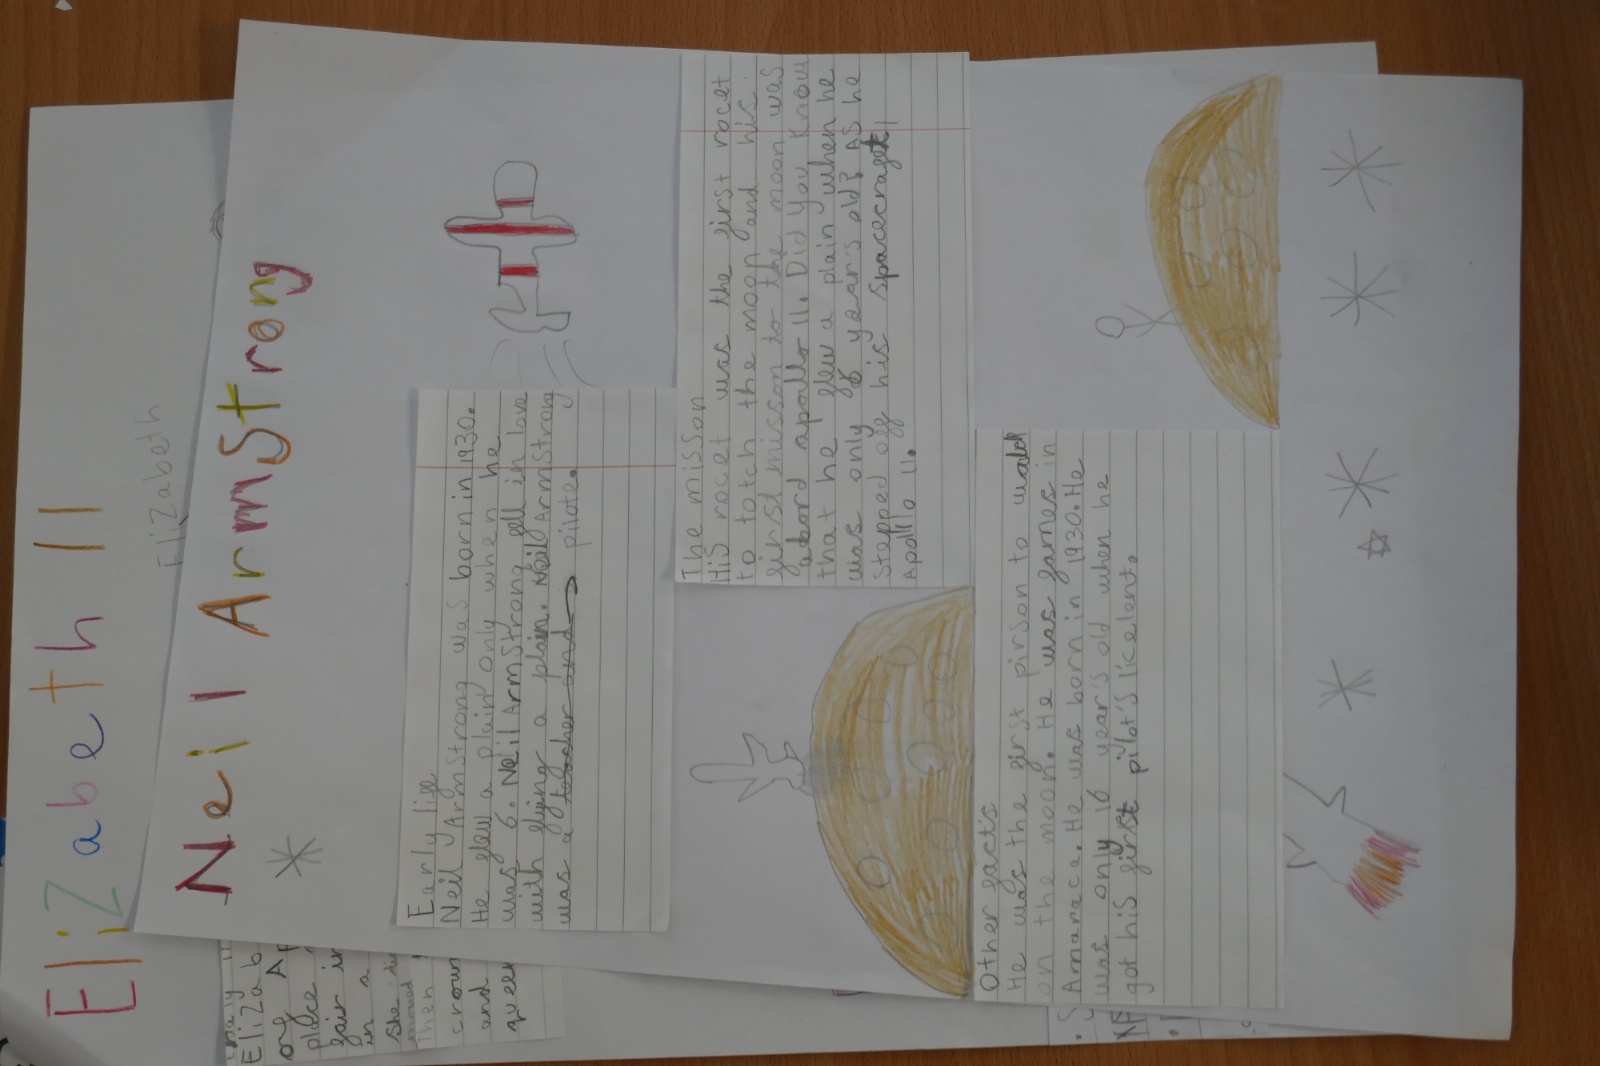 Elizabeth II
Elizabeth
Neil Armstrong
Early life
Neil Armstrong was born in 1930.
He flew a plain only when he
was 6. Neil Armstrong fell in love
with flying a plain. Neil Armstrong
was a teacher and pilote.
The misson
His rocet was the first rocet
to totch the moon and his
first misson to the moon was
abord apollo 11. Did you know
that he flew a plain when he
was only 6 year's old? As he
stepped off his spacecraft
Apollo 11.
Other fact's
He was the first pirson to walk
on the moon. He was fames in
Amaraca. He was born in 1930. He
was only 16 year's old when he
got his first pilot's licelent.
Elizab
place
in a
She di
Then
crown
and
queen